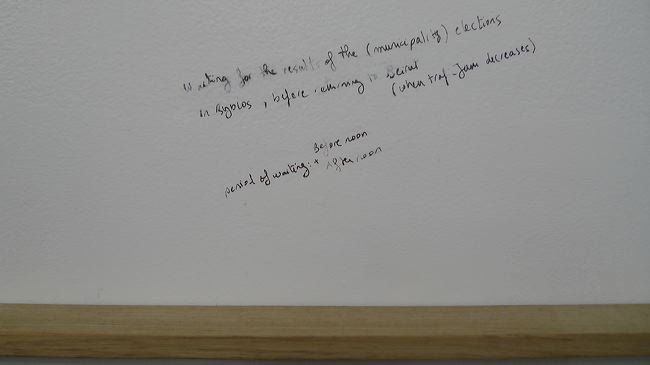 Waiting for the results of the (municipality) elections
in Byblos, before returning to Beirut
(when traf-Jam decreases)
Before noon
period of waiting: + After noon